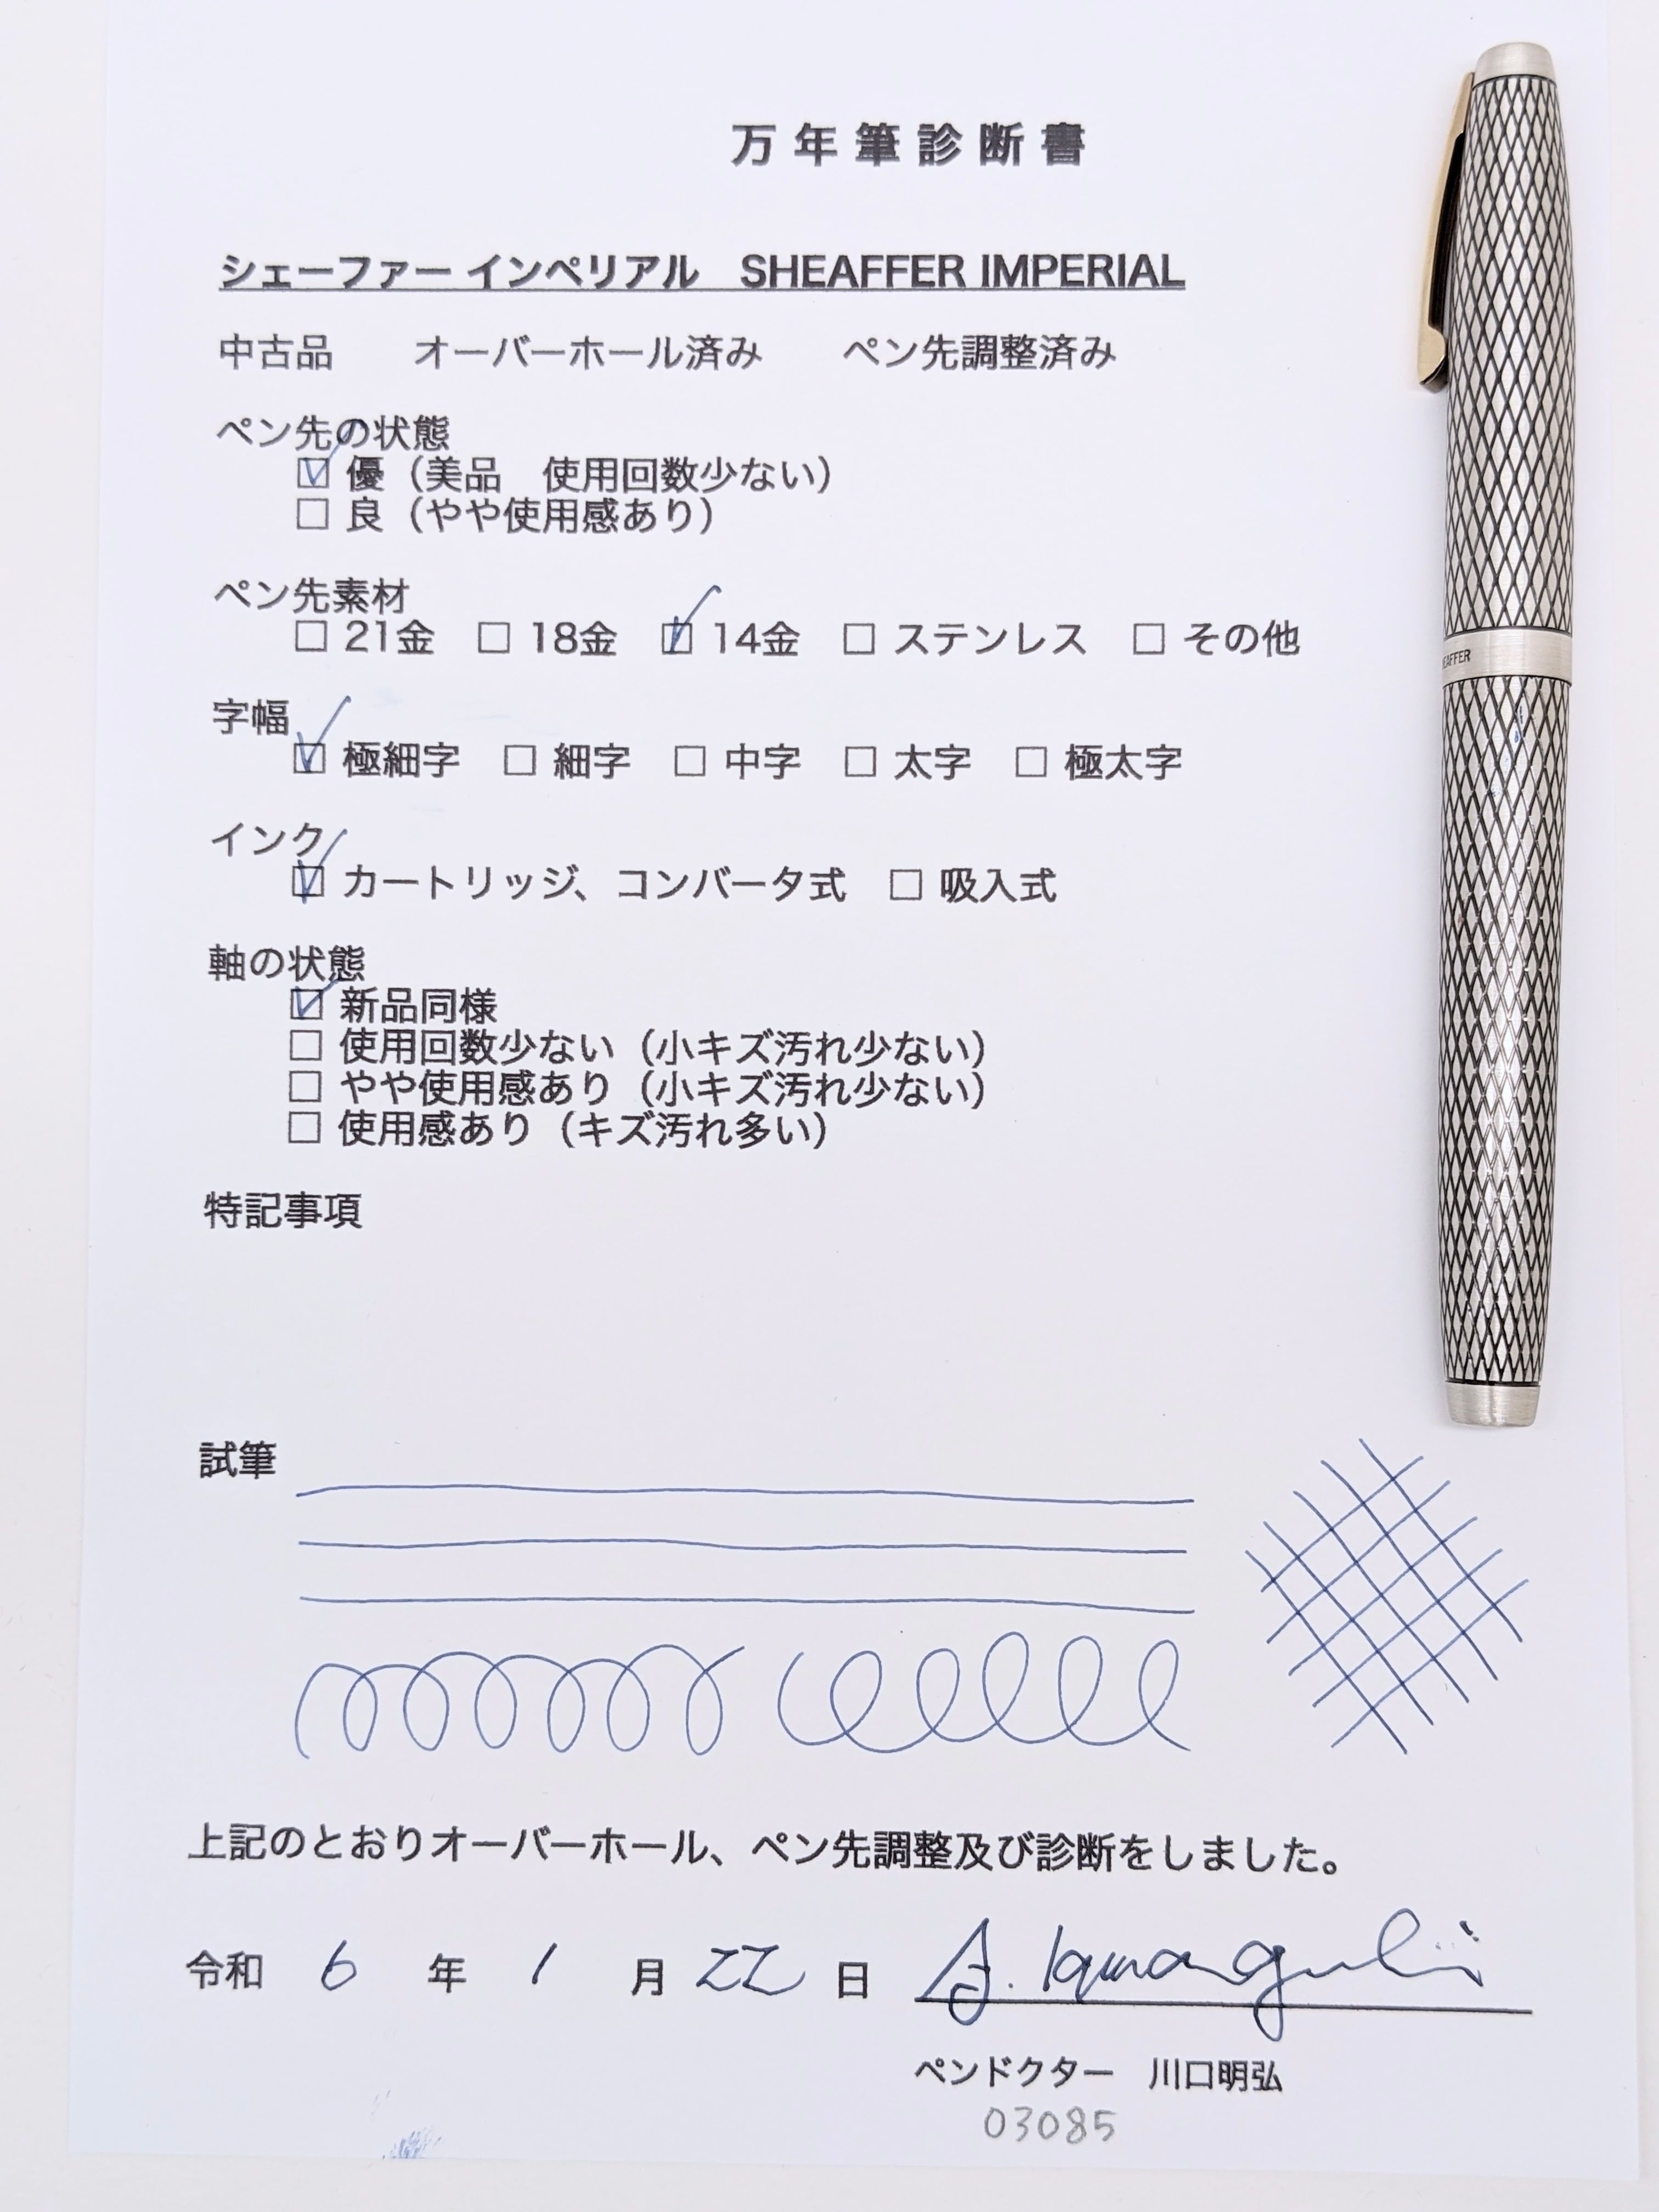 万年筆診断書
シェーファー インペリアル　SHEAFFER IMPERIAL
中古品　オーバーホール済み　ペン先調整済み
ペン先の状態
☑ 優（美品　使用回数少ない）
□ 良（やや使用感あり）
ペン先素材
□ 21金　□ 18金　☑ 14金　□ ステンレス　□ その他
字幅
☑ 極細字　□ 細字　□ 中字　□ 太字　□ 極太字
インク
☑ カートリッジ、コンバータ式　□ 吸入式
軸の状態
☑ 新品同様
□ 使用回数少ない（小キズ汚れ少ない）
□ やや使用感あり（小キズ汚れ少ない）
□ 使用感あり（キズ汚れ多い）
特記事項
試筆
上記のとおりオーバーホール、ペン先調整及び診断をしました。
令和 6 年 1 月 22 日
ペンドクター　川口明弘
03085
EAFFER